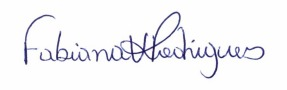 Fabiana H Rodrigues